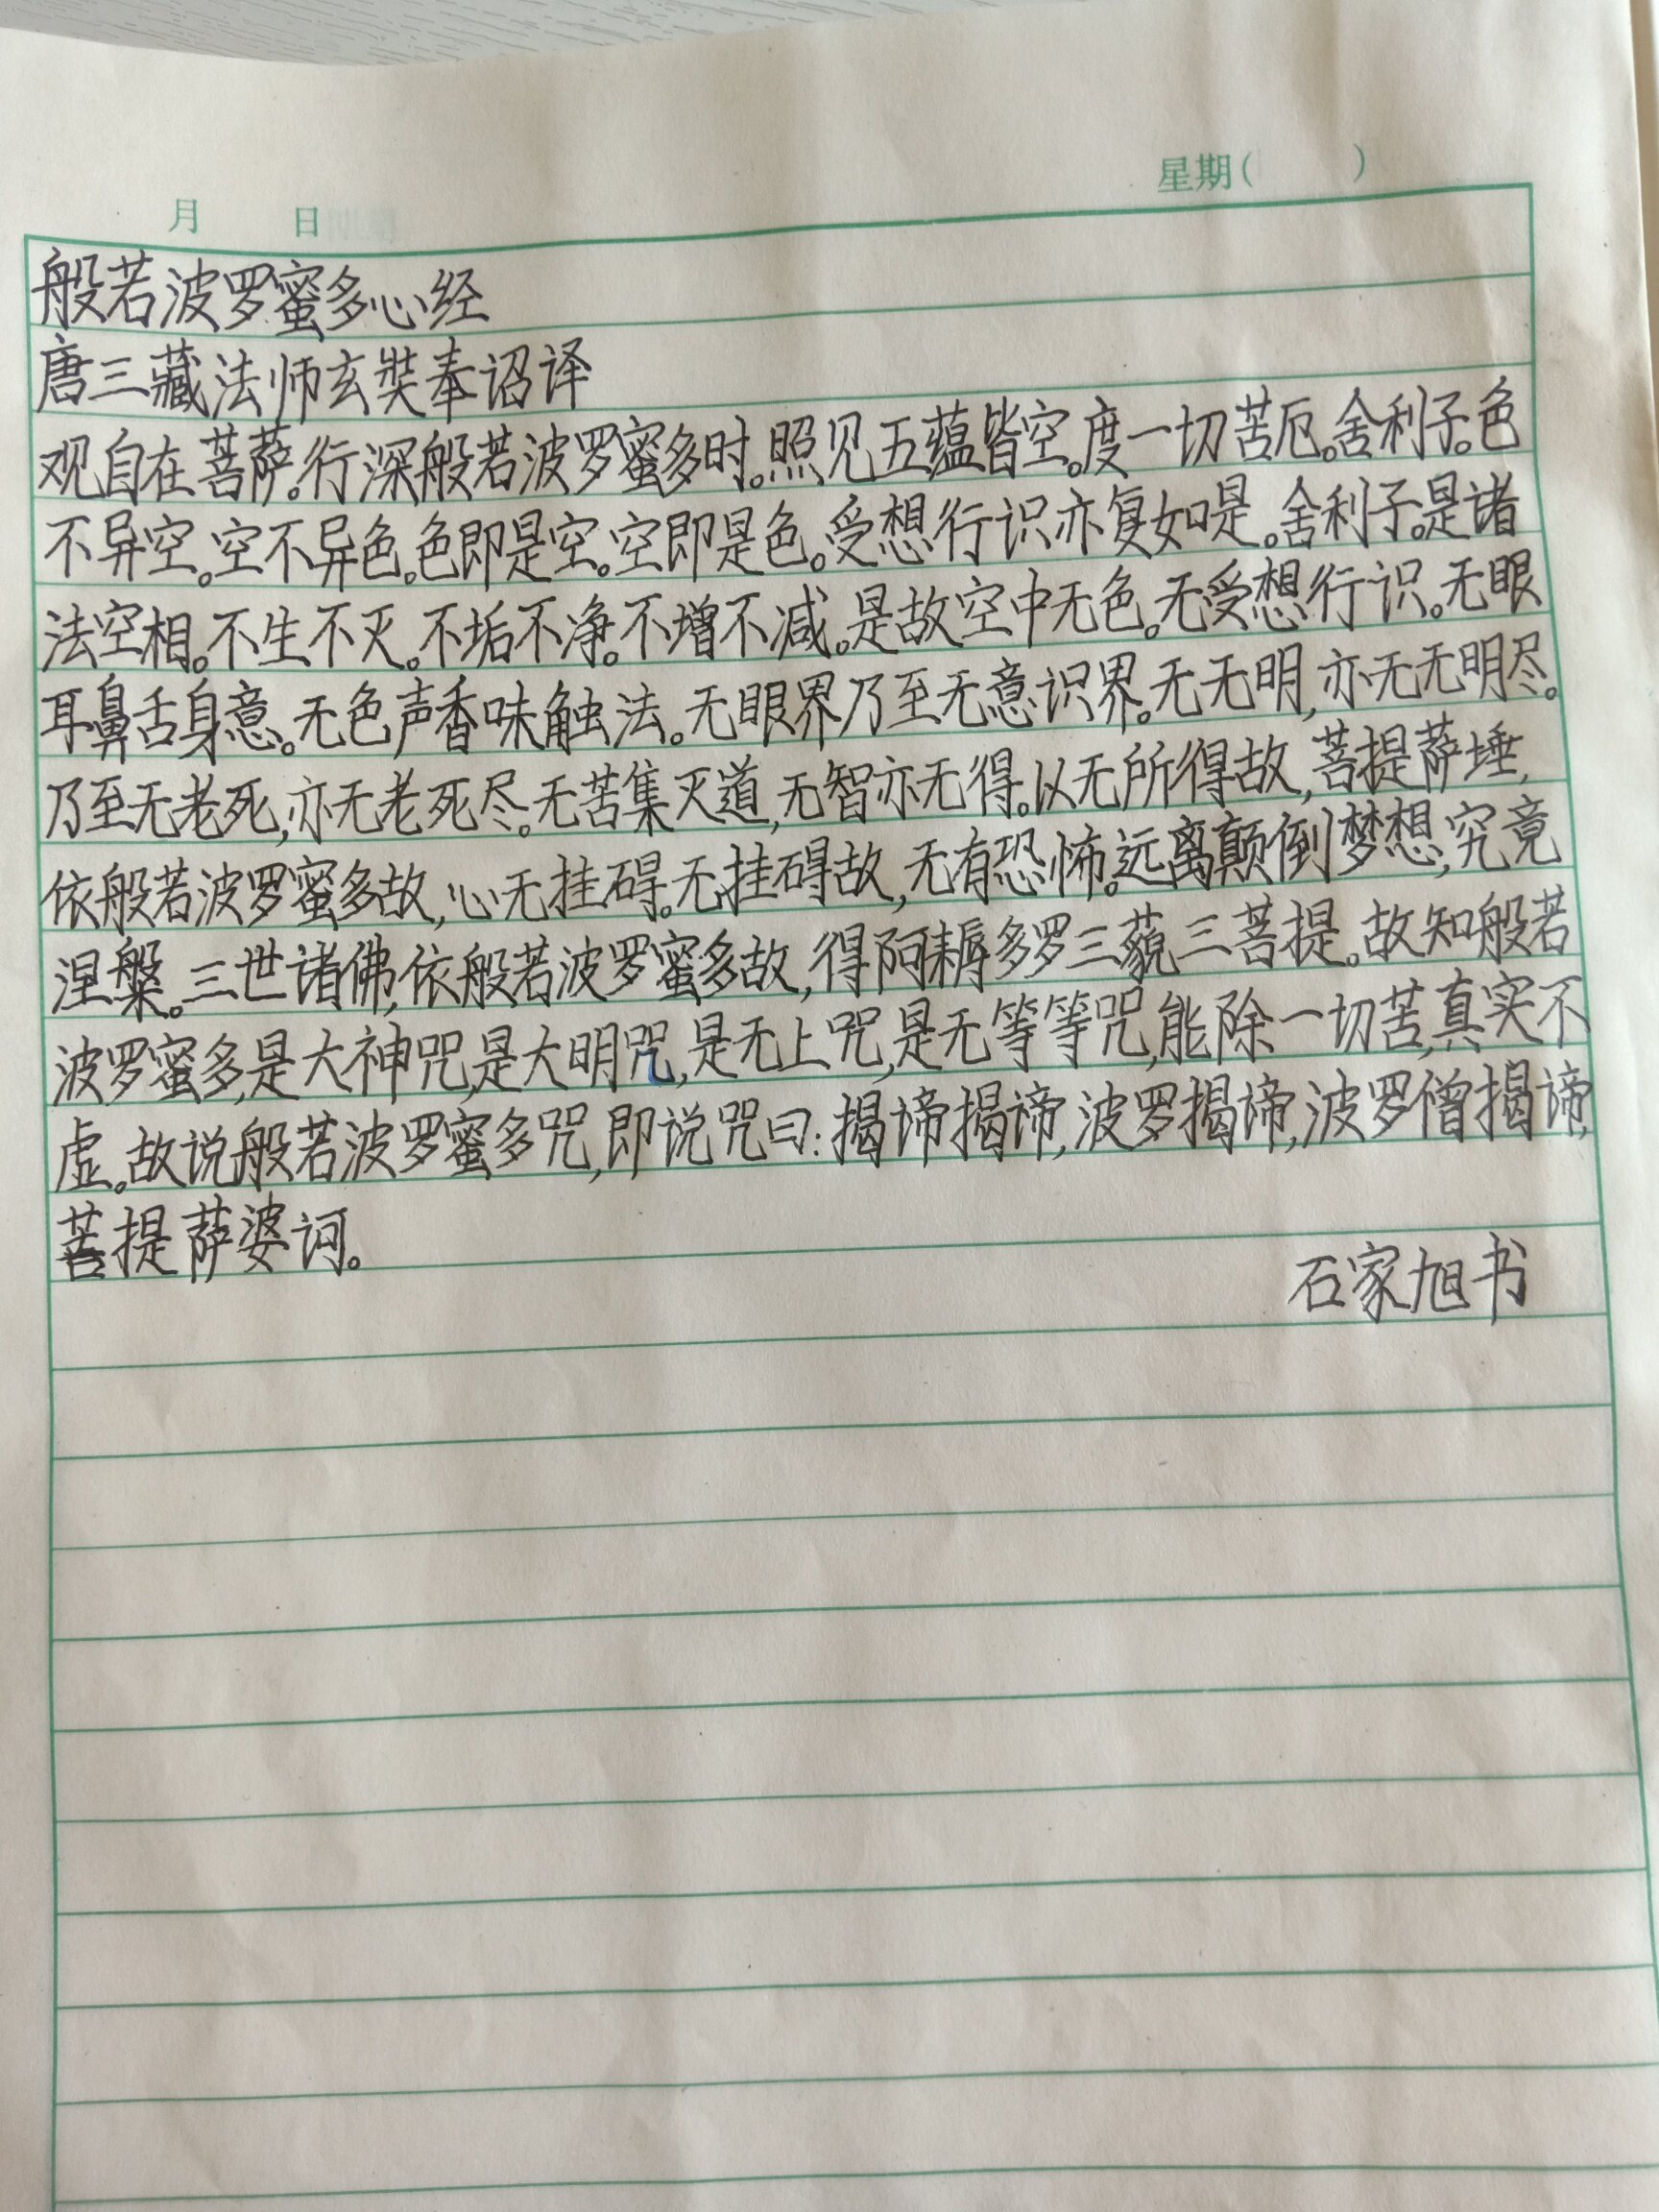 星期(    )
月    日
般若波罗蜜多心经
唐三藏法师玄奘奉诏译
观自在菩萨。行深般若波罗蜜多时。照见五蕴皆空。度一切苦厄。舍利子。色
不异空。空不异色。色即是空。空即是色。受想行识亦复如是。舍利子。是诸
法空相。不生不灭。不垢不净。不增不减。是故空中无色。无受想行识。无眼
耳鼻舌身意。无色声香味触法。无眼界乃至无意识界。无无明,亦无无明尽。
乃至无老死,亦无老死尽。无苦集灭道,无智亦无得。以无所得故,菩提萨埵,
依般若波罗蜜多故,心无挂碍。无挂碍故,无有恐怖。远离颠倒梦想,究竟
涅槃。三世诸佛,依般若波罗蜜多故,得阿耨多罗三藐三菩提。故知般若
波罗蜜多,是大神咒,是大明咒,是无上咒,是无等等咒,能除一切苦,真实不
虚。故说般若波罗蜜多咒,即说咒曰:揭谛揭谛,波罗揭谛,波罗僧揭谛,
菩提萨婆诃。
石家旭书